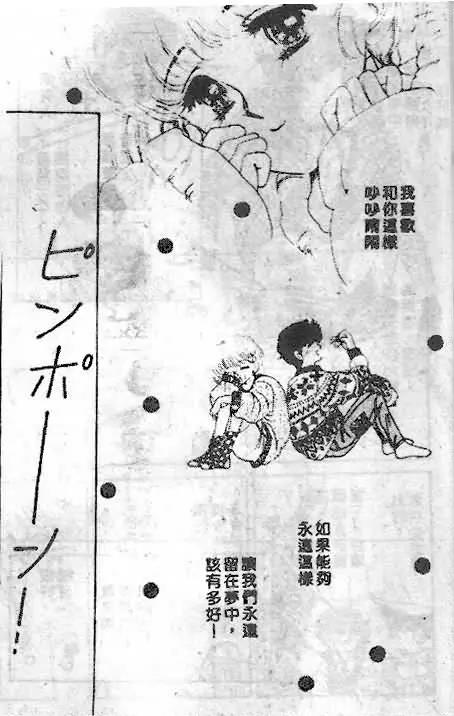 我喜歡
和你這樣
吵吵鬧鬧
如果能夠
永遠這樣
讓我們永遠
留在夢中，
該有多好！
ピンポーン!!